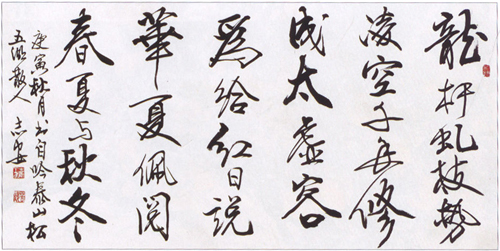 龍杆虬枝勢
凌空千年修
成太虚容
爲給紅日説
華夏佩閲
春夏与秋冬
庚寅秋月书自吟泰山松
五湖散人